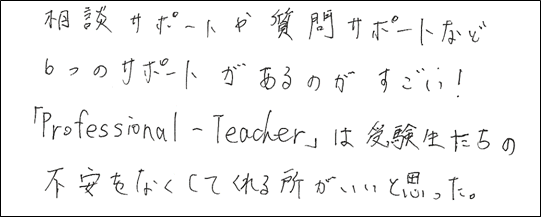 相談サポートや質問サポートなど
6つのサポートがあるのがすごい!
「Professional-Teacher」は受験生たちの
不安をなくしてくれる所がいいと思った。